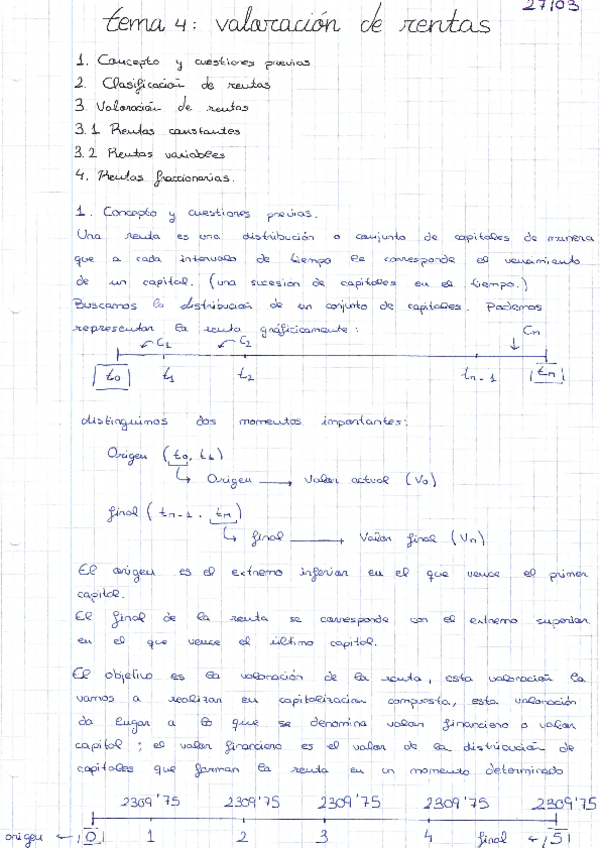 27/03
tema 4: valoración de rentas
1. Concepto y cuestiones previas
2. Clasificación de rentas
3. Valoración de rentas
3.1 Rentas constantes
3.2 Rentas variables
4. Rentas fraccionarias.
1. Concepto y cuestiones previas.
Una renta es una distribución o conjunto de capitales de manera
que a cada intervalo de tiempo le corresponde el vencimiento
de un capital. (una sucesión de capitales en el tiempo.)
Buscamos la distribución de un conjunto de capitales. Podemos
representar la renta gráficamente:
C1 C2 Cn
t0 t1 t2 tn-1 tn
distinguimos dos momentos importantes:
Origen (t0, t1)
Origen → Valor actual (V0)
final (tn-1, tn)
final → Valor final (Vn)
El origen es el extremo inferior en el que vence el primer
capital.
El final de la renta se corresponde con el extremo superior
en el que vence el último capital.
El objetivo es la valoración de la renta, esta valoración la
vamos a realizar en capitalización compuesta, esta valoración
da lugar a lo que se denomina valor financiero o valor
capital; el valor financiero es el valor de la distribución de
capitales que forman la renta en un momento determinado
2309'75 2309'75 2309'75 2309'75 2309'75
origen ← 0 1 2 3 4 final ← 5